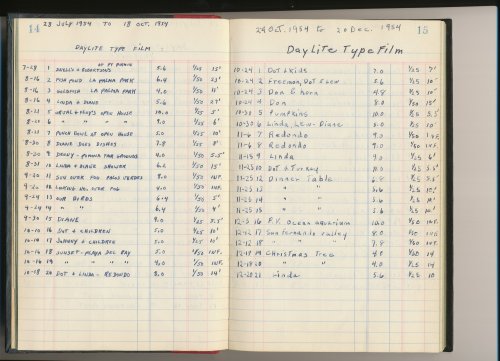 14 28 JULY 1954 TO 18 OCT. 1954
DAYLITE TYPE FILM
7-28 1 & ROBERTSONS 5.6 1/25 15'
8-16 2 FISH POND LA PALMA PARK 6.4 1/50 25'
8-16 3 GOLDFISH LA PALMA PARK 4.0 1/50 10'
8-16 4 LINDA & DIANE 5.6 1/50 27'
8-21 5 OPEN HOUSE 10.0 1/25 5'
8-21 6 " " " " 9.0 1/25 6'
8-21 7 PUNCH BOWL AT OPEN HOUSE 5.0 1/25 10'
8-30 8 DIANE DOES DISHES 7.8 1/25 8'
8-30 9 4.0 1/50 5.5'
8-31 10 LINDA & DIANE SHOWER 6.2 1/50 15'
9-20 11 SUN OVER FOG PALOS VERDES 8.0 1/50 INF.
9-20 12 LOOKING N.W. OVER FOG 4.0 1/50 INF.
9-24 13 OUR BIRDS 6.4 1/50 5'
9-24 14 " " 6.4 1/50 4'
9-30 15 DIANE 9.0 1/25 7.5'
10-10 16 DOT & CHILDREN 5.0 1/25 10'
10-10 17 JOHNNY & CHILDREN 5.0 1/25 10'
10-16 18 SUNSET - PLAYA DEL REY 5.0 1/50 INF.
10-16 19 " " " " 4.0 1/50 INF.
10-18 20 DOT & LINDA - REDONDO 8.0 1/50 14'
24 Oct. 1954 to 20 Dec. 1954 15
Daylite Type Film
10-24 1 Dot & Kids 7.0 1/25 7'
10-24 2 Freeman, Dot & Lew 5.6 1/25 10'
10-24 3 Don & horn 4.8 1/25 10'
10-24 4 Don 8.0 1/50 15'
10-31 5 Pumpkins 10.0 1/25 5.5'
10-30 6 Linda, Lew - Diane 5.0 1/25 10'
11-6 7 Redondo 9.0 1/50 INF.
11-6 8 Redondo 9.0 1/50 INF.
11-15 9 Linda 9.0 1/25 6'
11-25 10 Dot & Turkey 11.0 1/25 5.5'
11-25 12 Dinner Table 6.8 1/25 8.5'
11-25 13 " " 5.6 1/25 10'
11-25 14 " " 5.6 1/25 10'
11-25 15 " " 5.6 1/25 10'
12-5 16 P.V. Ocean aquarium 10.0 1/50 INF.
12-12 17 San Fernando Valley 8.0 1/50 INF.
12-12 18 " " 7.8 1/50 INF.
12-19 19 Christmas Tree 4.0 1/25 14
12-18 20 " " 4.0 1/25 14
12-20 21 Linda 5.6 1/25 10